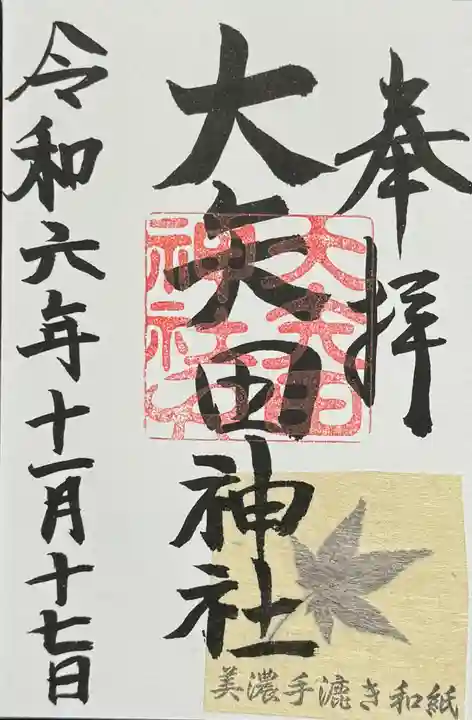 奉拝
大矢田神社
大矢田
神社
令和六年十一月十七日
美濃手漉き和紙